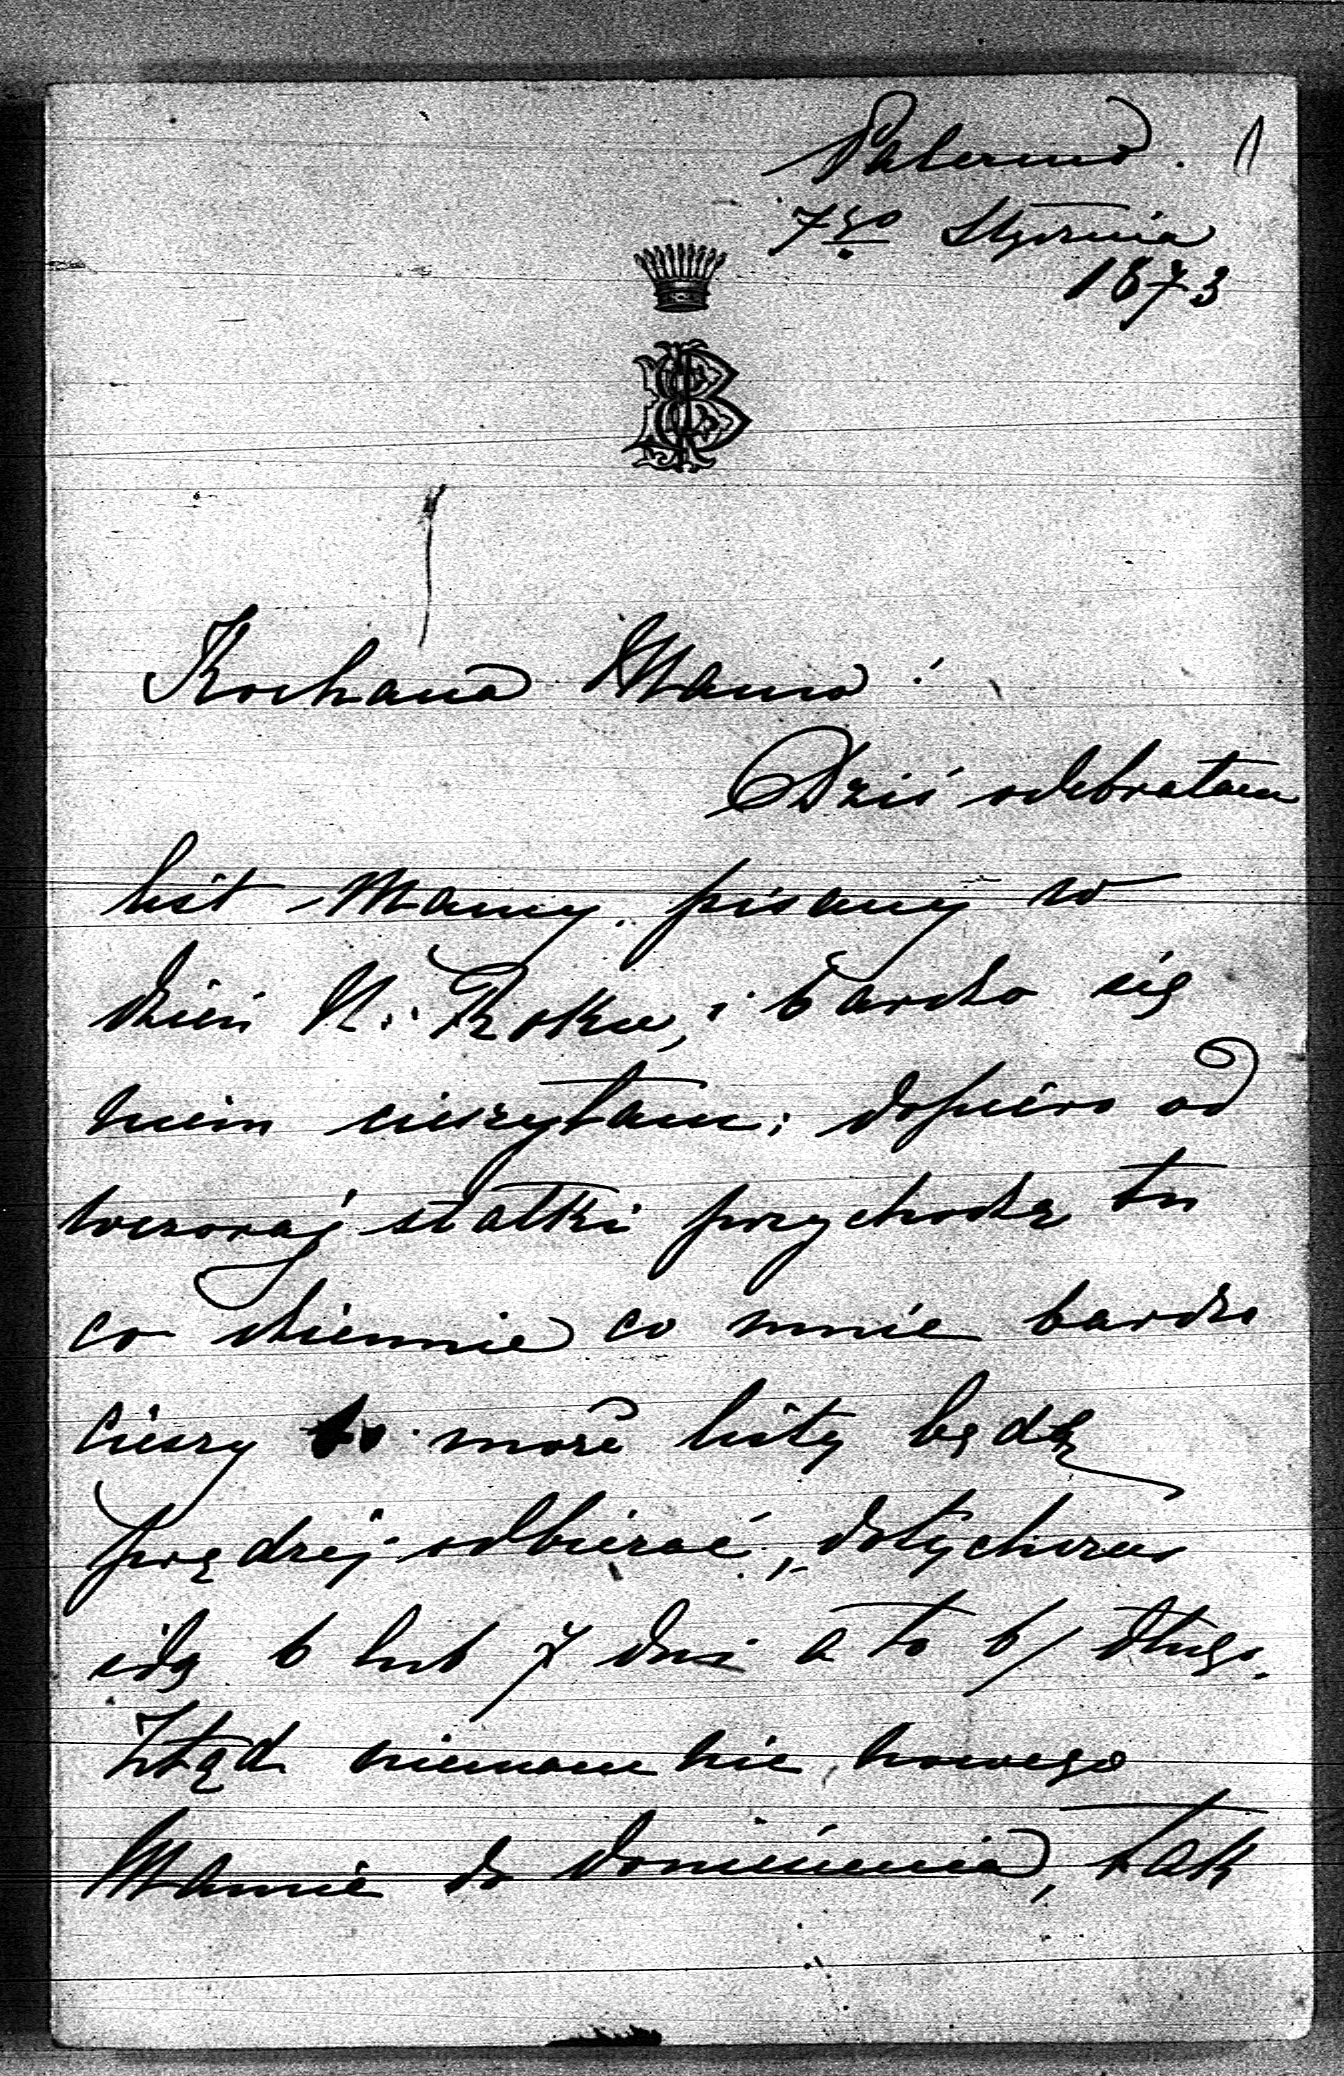 Palermo. 1)
7go Stycznia
1873
Kochana Mamo!
Dziś odebrałam
list Mamy pisany w
dzień N. Roku, i bardzo się
niem cieszyłam; dopiéro od
wczoraj statki przychodzą tu
co dziennie co mnie bardzo
cieszy bo może listy będę
prędzéj odbierać, dotychczas
idą 6 lub 7 dni a to b/ długo.
Ztąd niemam nic nowego
Mamie do doniesienia, tak